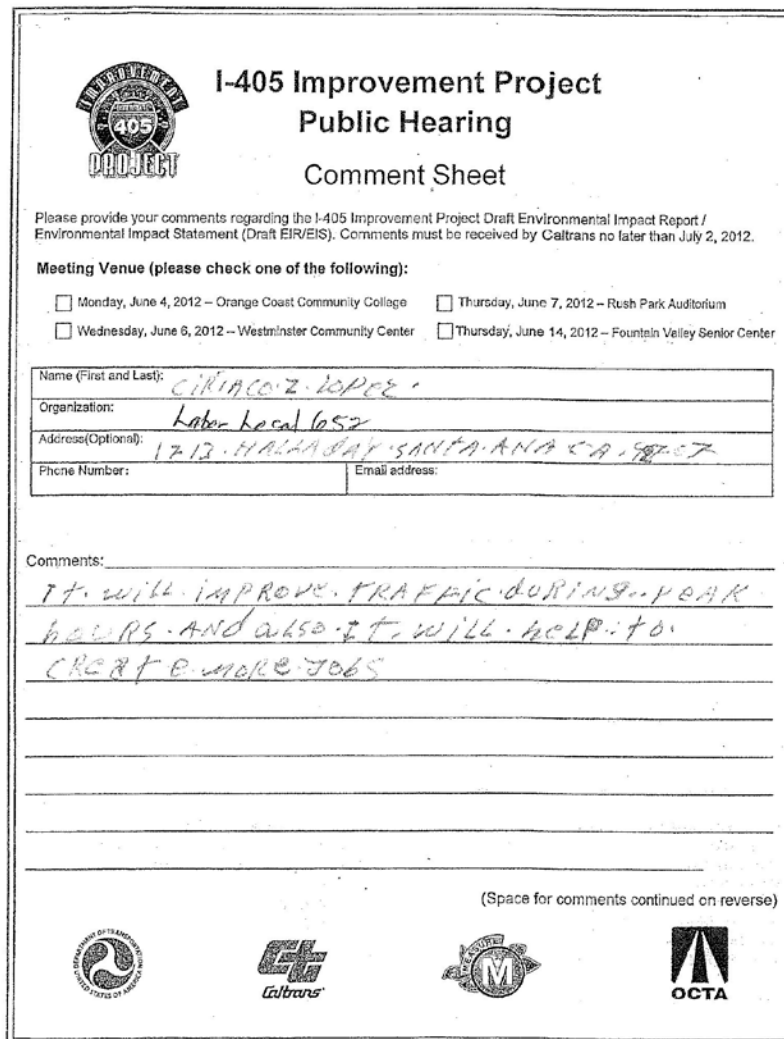 IMPROVEMENT
405
PROJECT
I-405 Improvement Project
Public Hearing
Comment Sheet
Please provide your comments regarding the I-405 Improvement Project Draft Environmental Impact Report /
Environmental Impact Statement (Draft EIR/EIS). Comments must be received by Caltrans no later than July 2, 2012.
Meeting Venue (please check one of the following):
Monday, June 4, 2012 – Orange Coast Community College
Thursday, June 7, 2012 – Rush Park Auditorium
Wednesday, June 6, 2012 – Westminster Community Center
Thursday, June 14, 2012 – Fountain Valley Senior Center
Name (First and Last): CiRiACO·Z·LOPEZ·
Organization: Labor Local 652
Address(Optional): 1713·HALLADAY·SANTA·ANA CA·
Phone Number:
Email address:
Comments:
It·will·iMPROVE·TRAFFic·duRiNg··PEAK
hOURS·ANd also·It·will·hELP··to·
CREAt E·MORE·JObS
(Space for comments continued on reverse)
DEPARTMENT OF TRANSPORTATION
UNITED STATES OF AMERICA
Ct
Caltrans
MEASURE
M
OCTA